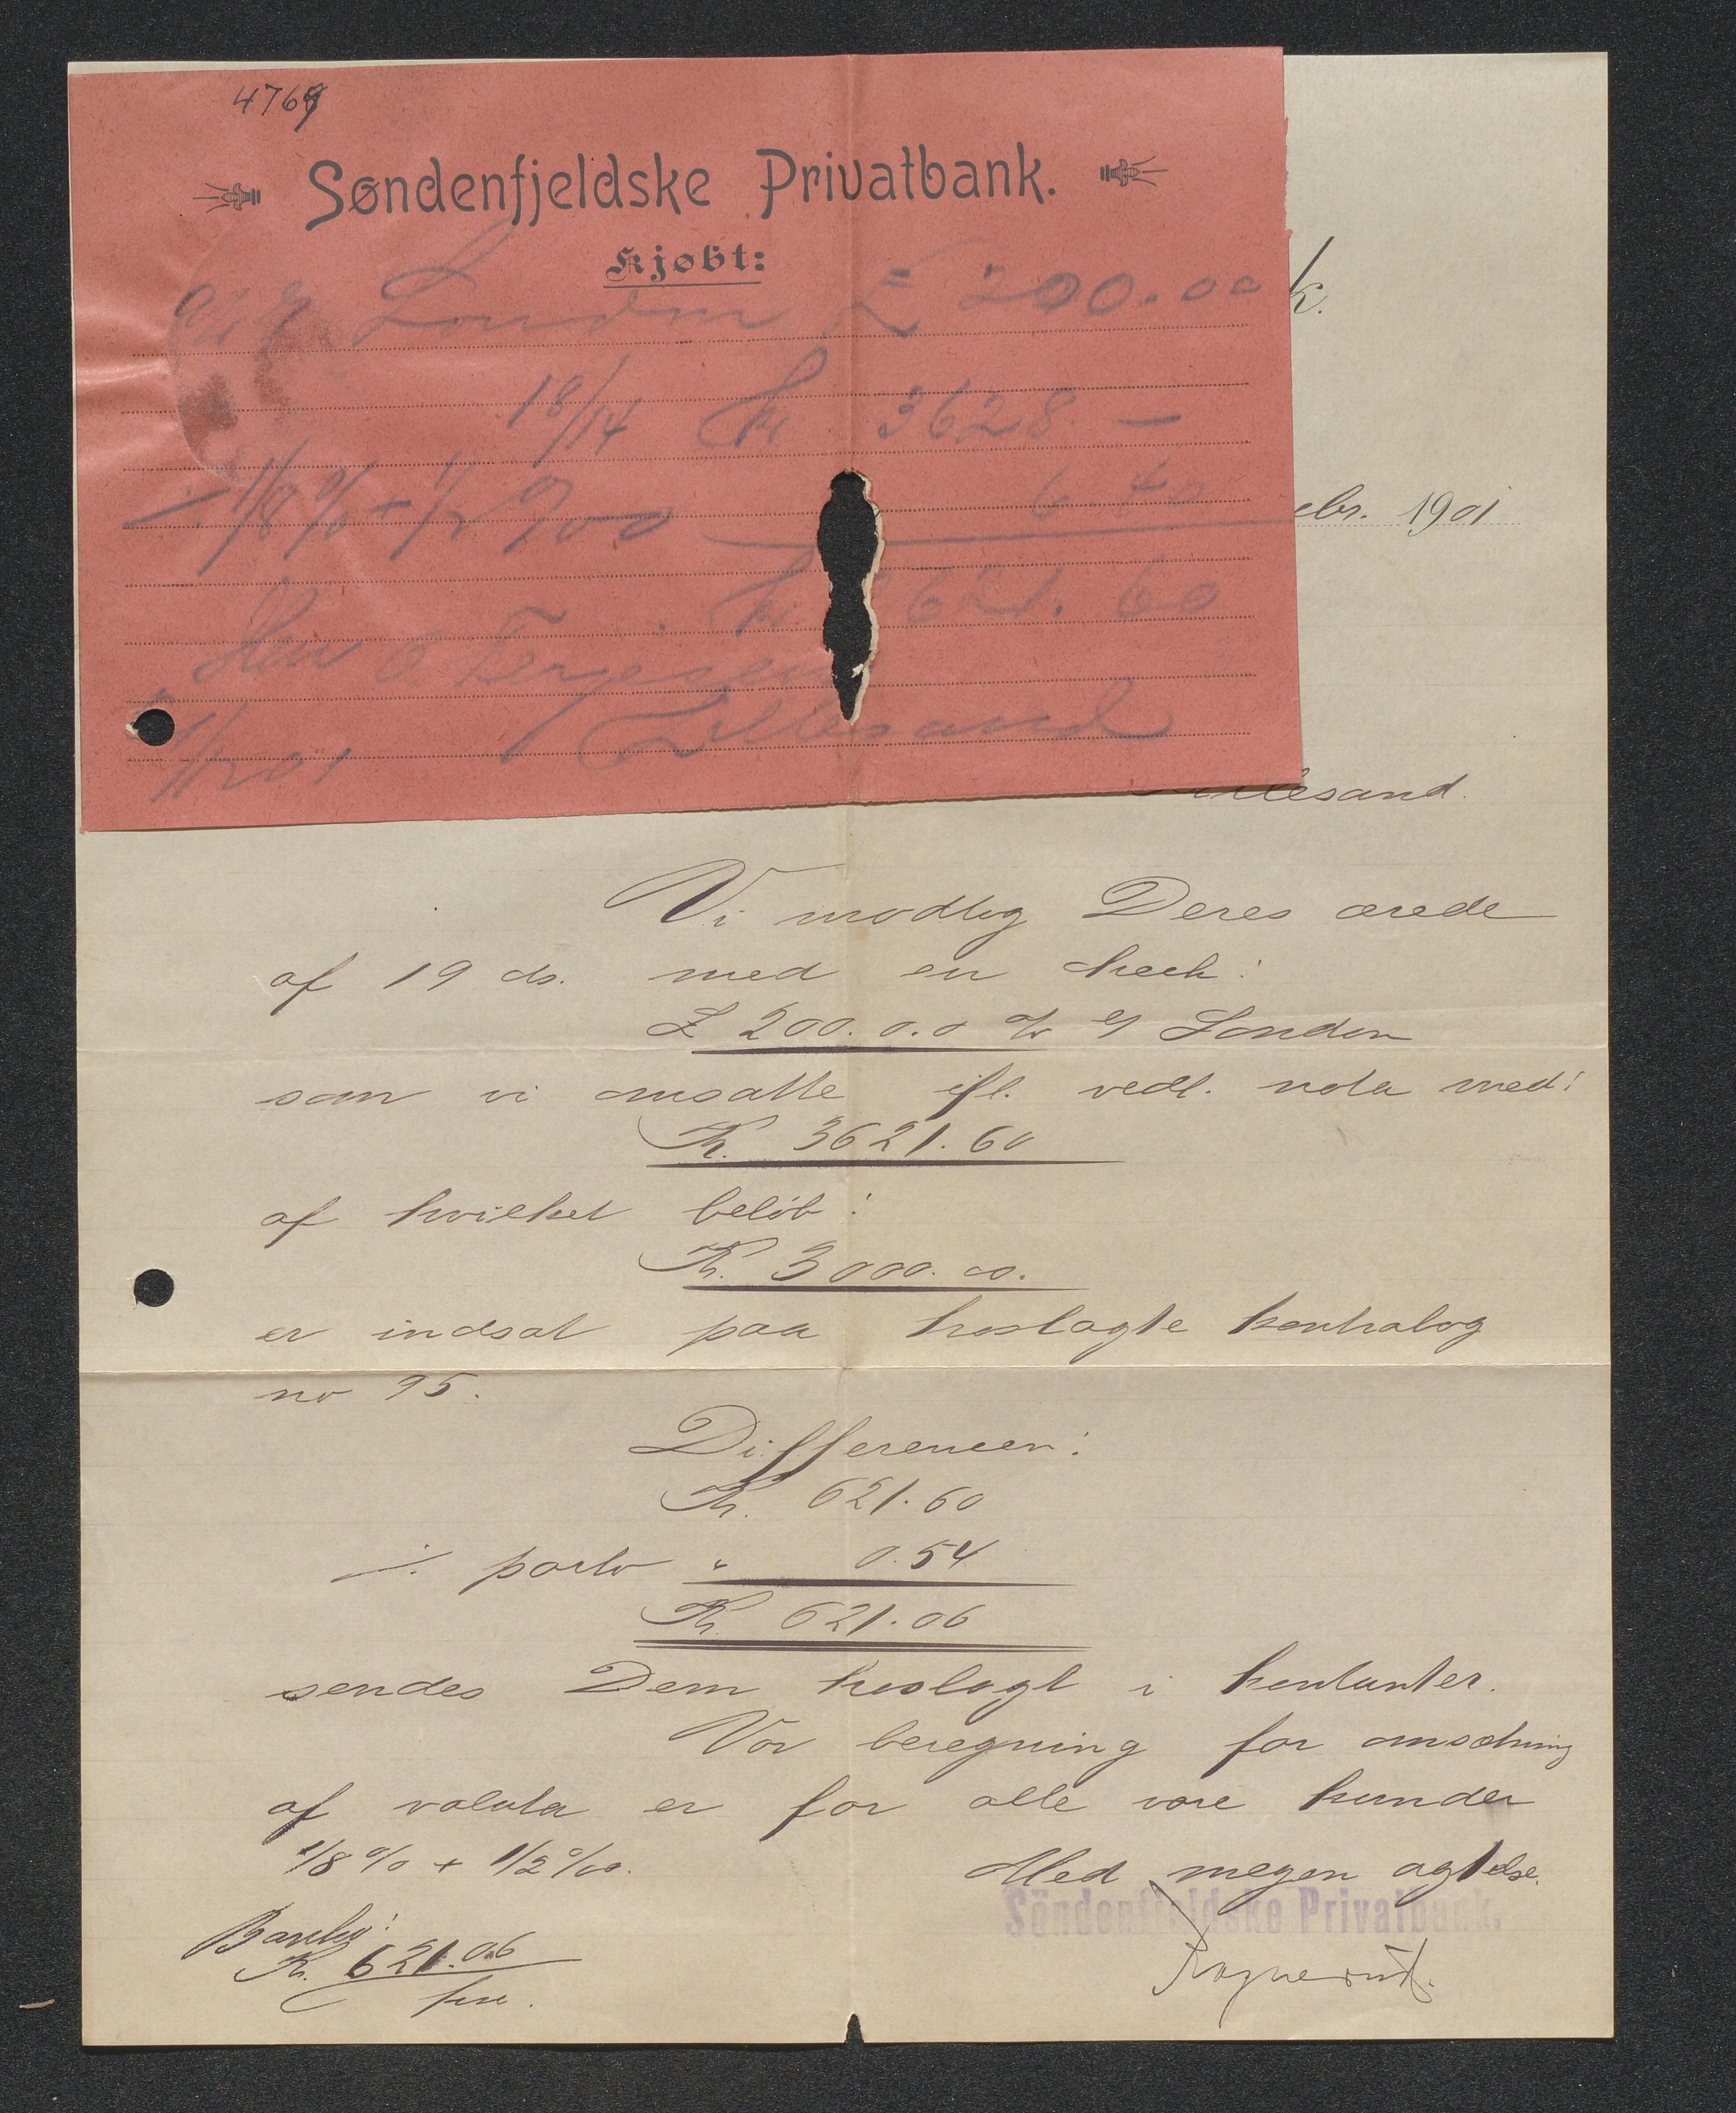 4769
Søndenfjeldske Privatbank.
Kjøbt:
a/v £ London £ 200.00
18/14 Kr. 3628.—
÷ 1/8 % + 1/2 ‰ 6.40
Kr. 3621.60
Herr O. Terjesen
Lillesand
k.
ebr. 1901
illesand.
Vi modtog Deres ærede
af 19 ds. med en check:
£ 200.0.0 a/v London
som vi omsatte ifl. vedl. nota med:
Kr. 3621.60
af hvilket beløb:
Kr. 3000.00.
er indsat paa hoslagte kontrabog
no 95.
Differencen:
Kr. 621.60
÷ porto " 0.54
Kr. 621.06
sendes Dem hoslagt i kontanter.
Vor beregning for omsætning
af valuta er for alle vore kunder
1/8 % + 1/2 ‰.
Med megen agtelse.
Söndenfjeldske Privatbank.
Kr. 621.06